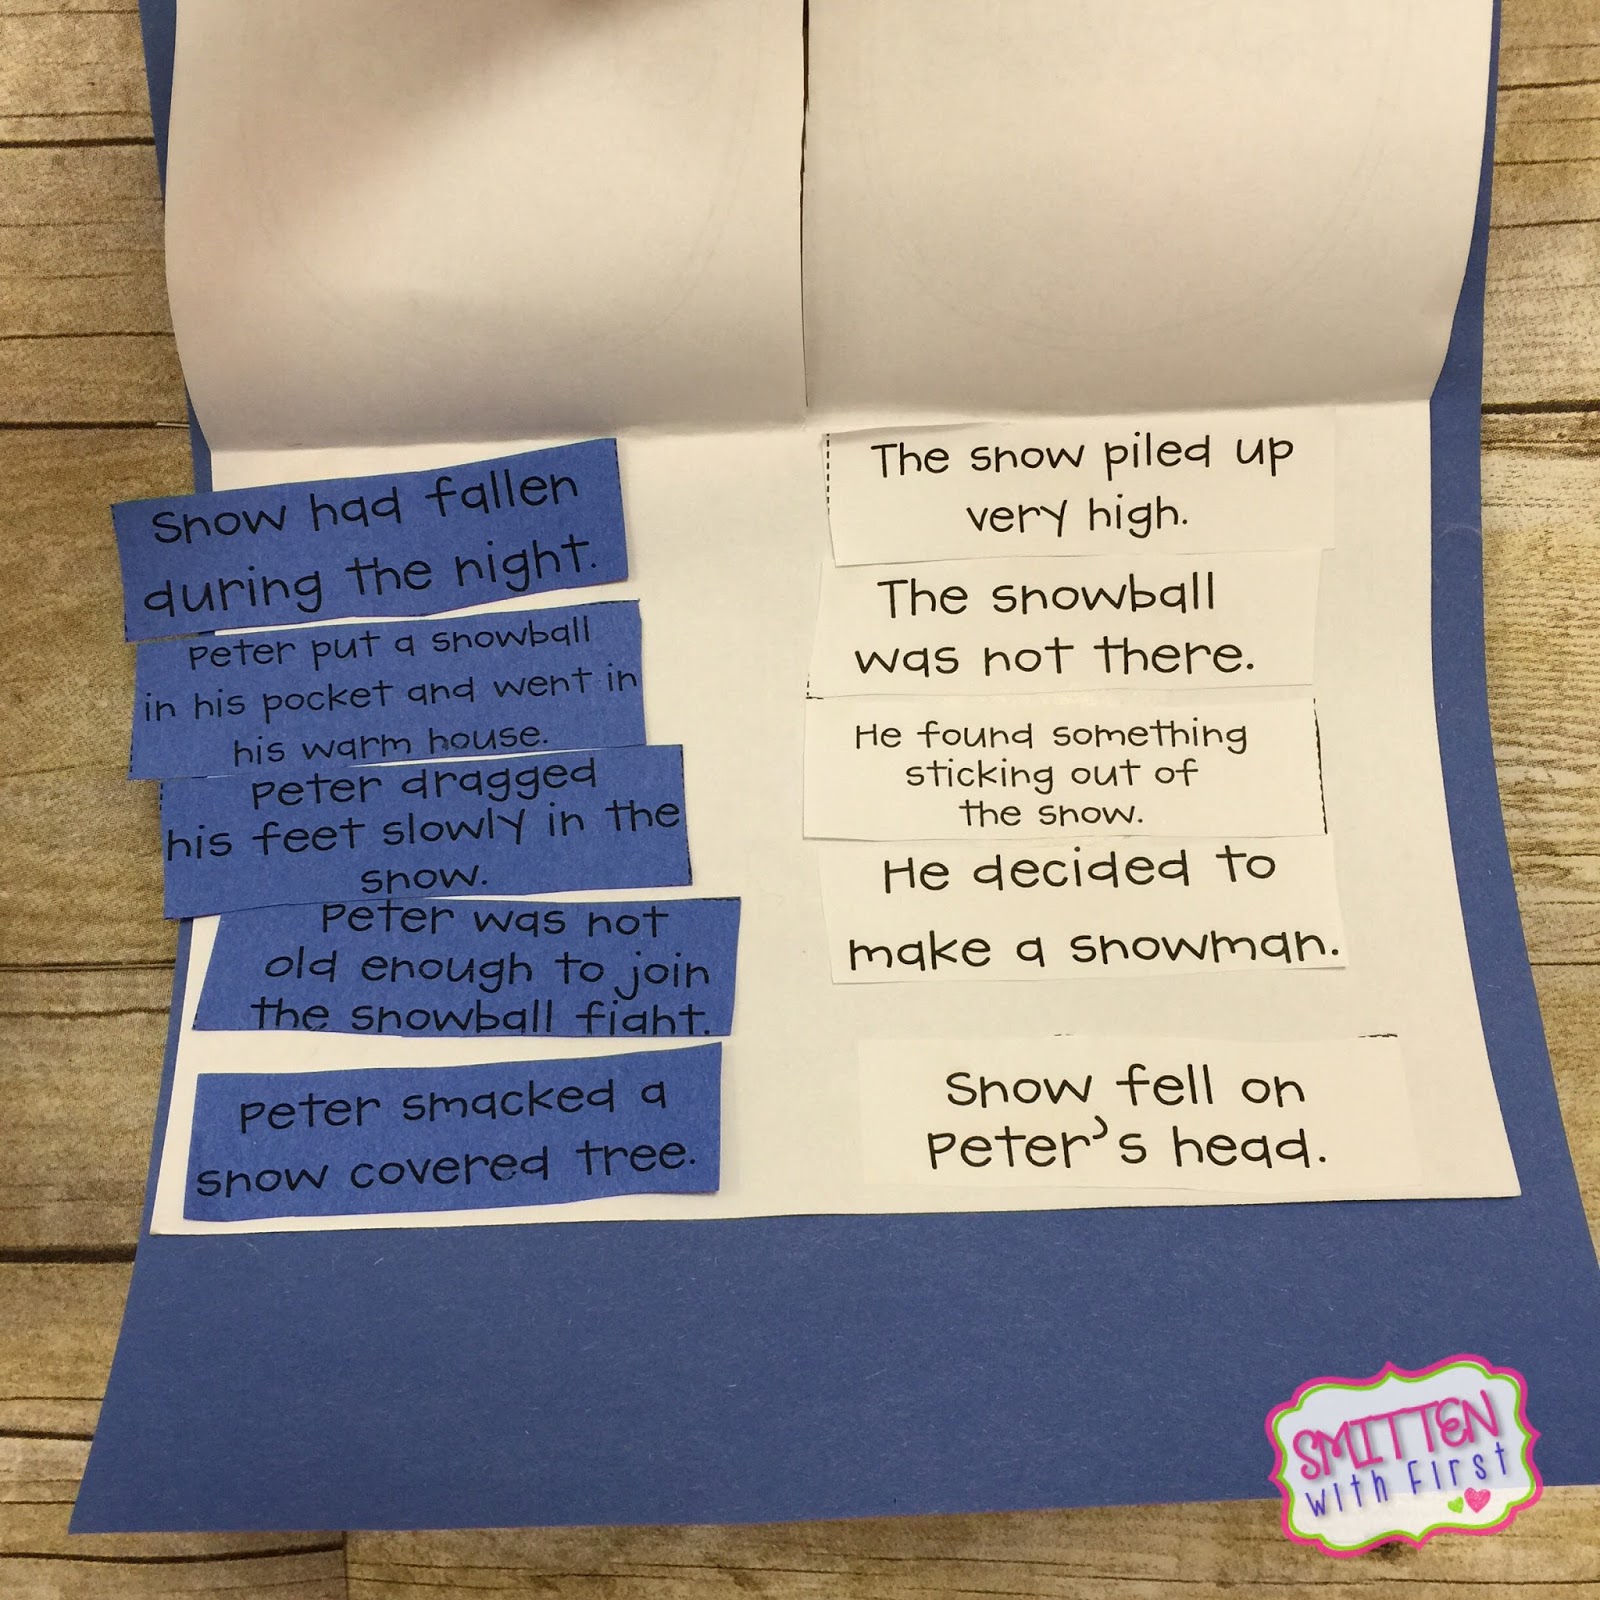 Snow had fallen
during the night.
Peter put a snowball
in his pocket and went in
his warm house.
Peter dragged
his feet slowly in the
snow.
Peter was not
old enough to join
the snowball fight.
Peter smacked a
snow covered tree.
The snow piled up
very high.
The snowball
was not there.
He found something
sticking out of
the snow.
He decided to
make a snowman.
Snow fell on
Peter's head.
SMITTEN
with First